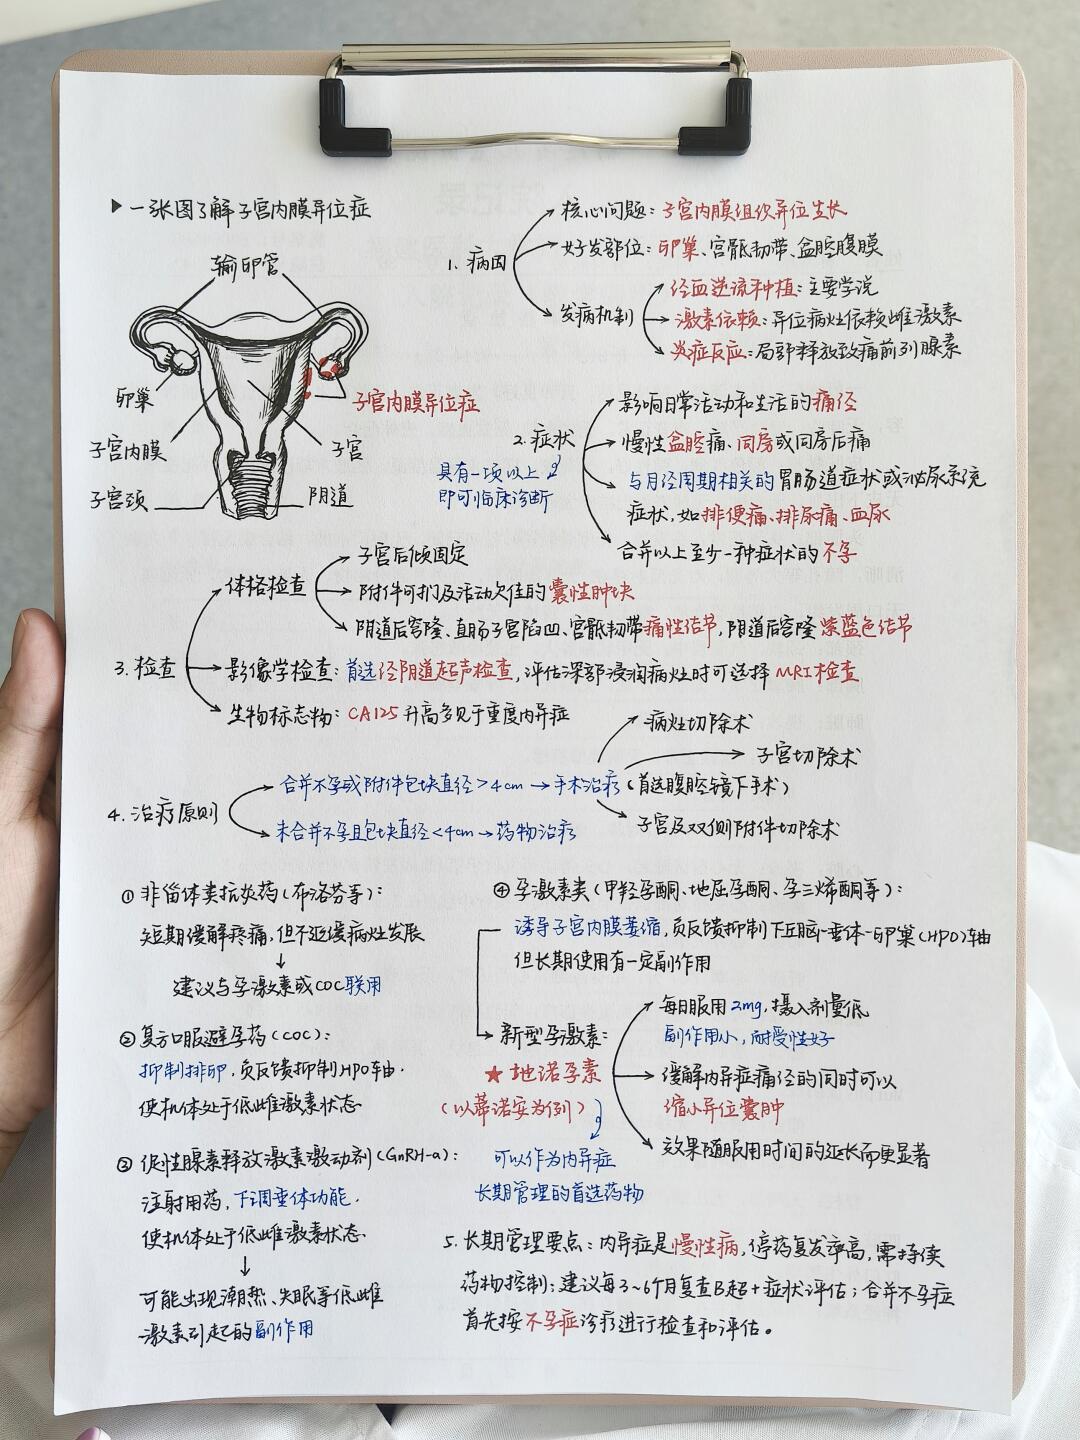 ▶一张图了解子宫内膜异位症
输卵管
卵巢
子宫内膜异位症
子宫内膜
子宫
子宫颈
阴道
1. 病因
核心问题：子宫内膜组织异位生长
好发部位：卵巢、宫骶韧带、盆腔腹膜
发病机制
经血逆流种植：主要学说
激素依赖：异位病灶依赖雌激素
炎症反应：局部释放致痛前列腺素
2. 症状
具有一项以上
即可临床诊断
影响日常活动和生活的痛经
慢性盆腔痛、同房或同房后痛
与月经周期相关的胃肠道症状或泌尿系统
症状，如排便痛、排尿痛、血尿
合并以上至少一种症状的不孕
3. 检查
体格检查
子宫后倾固定
附件可扪及活动欠佳的囊性肿块
阴道后穹隆、直肠子宫陷凹、宫骶韧带痛性结节，阴道后穹隆紫蓝色结节
影像学检查：首选经阴道超声检查，评估深部浸润病灶时可选择MRI检查
生物标志物：CA125升高多见于重度内异症
4. 治疗原则
合并不孕或附件包块直径>4cm→手术治疗（首选腹腔镜下手术）
病灶切除术
子宫切除术
子宫及双侧附件切除术
未合并不孕且包块直径<4cm→药物治疗
① 非甾体类抗炎药（布洛芬等）：
短期缓解疼痛，但不延缓病灶发展
↓
建议与孕激素或COC联用
② 复方口服避孕药（COC）：
抑制排卵，负反馈抑制HPO轴．
使机体处于低雌激素状态
③ 促性腺素释放激素激动剂（GnRH-a）：
注射用药，下调垂体功能．
使机体处于低雌激素状态
↓
可能出现潮热、失眠等低雌
激素引起的副作用
④ 孕激素类（甲羟孕酮、地屈孕酮、孕三烯酮等）：
诱导子宫内膜萎缩，负反馈抑制下丘脑-垂体-卵巢（HPO）轴
但长期使用有一定副作用
新型孕激素：
★ 地诺孕素
（以蒂诺安为例）
可以作为内异症
长期管理的首选药物
每日服用2mg，摄入剂量低
副作用小，耐受性好
缓解内异症痛经的同时可以
缩小异位囊肿
效果随服用时间的延长而更显著
5. 长期管理要点：内异症是慢性病，停药复发率高，需持续
药物控制；建议每3~6个月复查B超+症状评估；合并不孕症
首先按不孕症诊疗进行检查和评估。